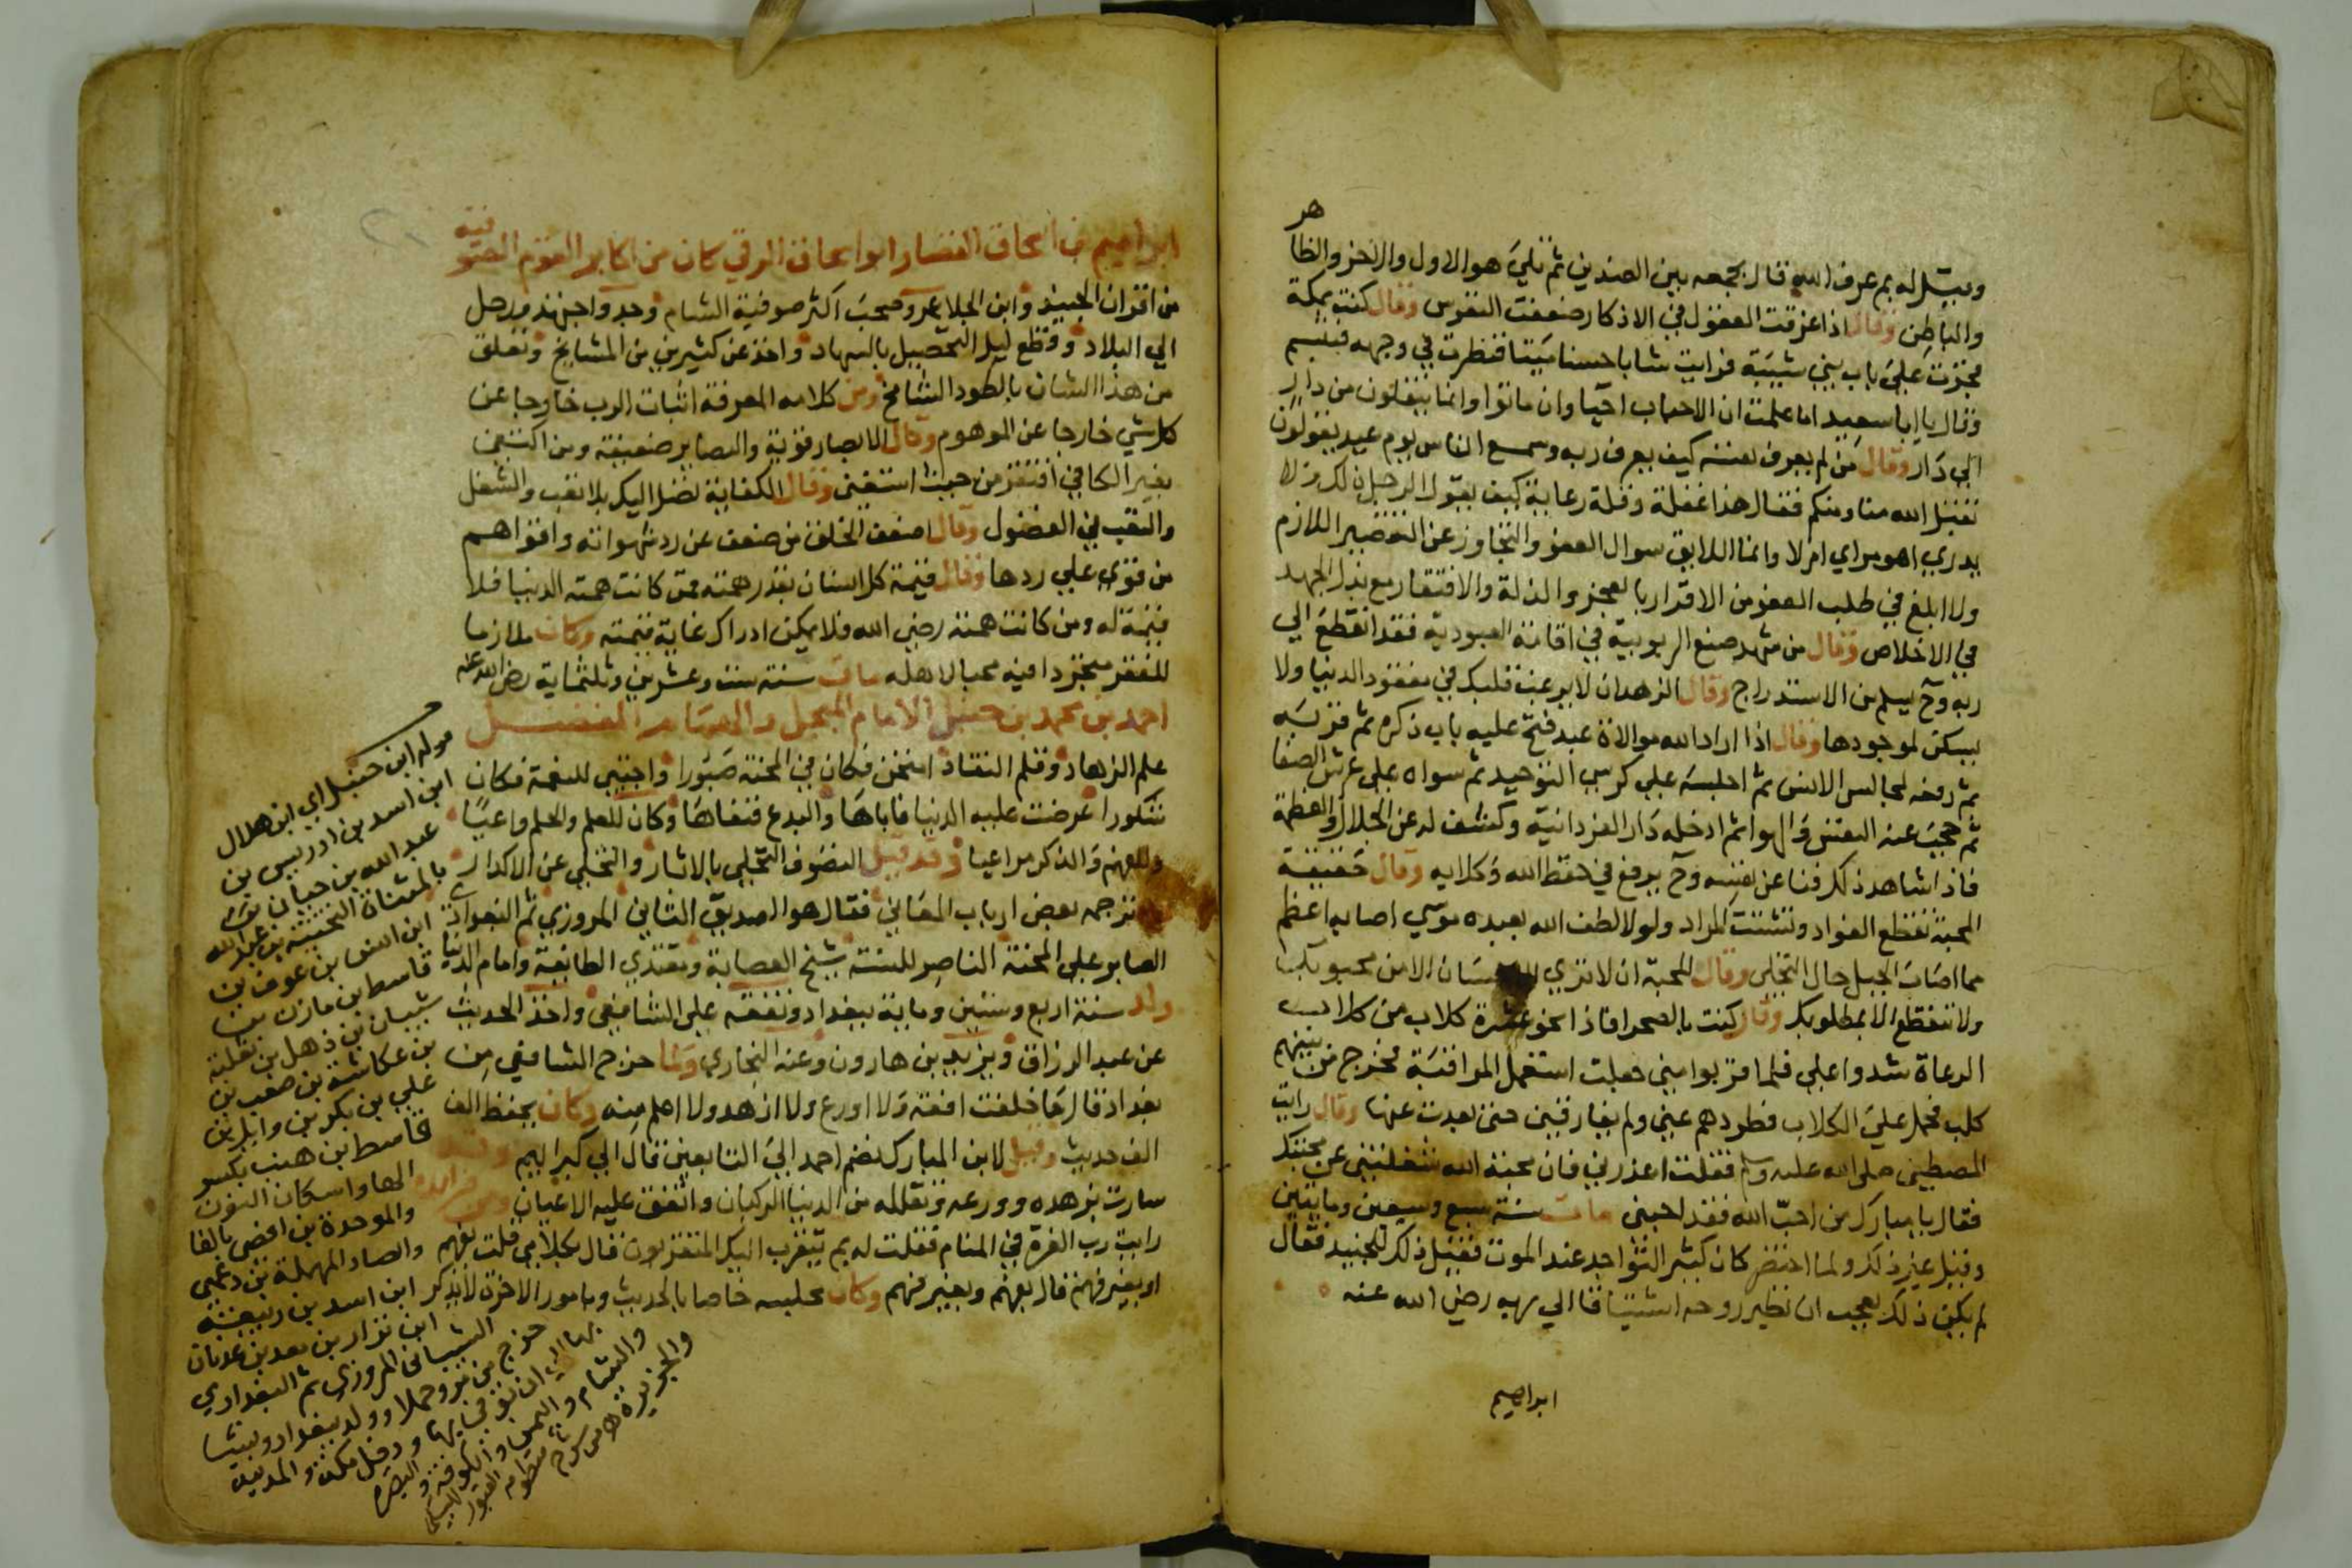 وقيل له بم عرف الله قال بجمعه بين الضدين ثم تلي هو الاول والاخر والظا
هر
والباطن وقال اذا غرقت العقول في الاذكار ضعفت النفوس وقال كنت بمكة
فجزت علي باب بني شيبة فرايت شابا حسنا ميتا فنظرت في وجهه فتبسم
وقال يا ابا سعيد اما علمت ان الاحباب احيا وان ماتوا وانما ينقلون من دار
الي دار وقال من لم يعرف نفسه كيف يعرف ربه وسمع الناس يوم عيد يقولون
تقبل الله منا ومنكم فقال هذا غفلة وقلة رعاية كيف يقول الرجل ذلك ولا
يدري اهو مراي ام لا وانما اللايق سوال العفو والتجاوز عن التقصير اللازم
ولا ابلغ في طلب العفو من الاقرار بالعجز والذلة والافتقار مع بذل الجهد
في الاخلاص وقال من شهد صنع الربوبية في اقامة العبودية فقد انقطع الي
ربه وح يسلم من الاستدراج وقال الزهد ان لا يرغب قلبك في مفقود الدنيا ولا
يسكن لموجودها وقال اذا اراد الله موالاة عبد فتح عليه باب ذكره ثم قربه
ثم رفعه لمجالس الانس ثم اجلسه علي كرسي التوحيد ثم سواه علي عرش الصفا
ثم حجب عنه النفس والهوا ثم ادخله دار الفردانية وكشف له عن الجلال والعظمة
فاذا شاهد ذلك فنا عن نفسه وح يرفع في حفظ الله وكلايه وقال حقيقة
المحبة تقطع الفواد وتشتت المراد ولولا لطف الله بعبده موسي اصابه اعظم
مما اصاب الجبل حال التجلي وقال المحبة ان لا تري الاحسان الا من محبوبك
ولا تنقطع الا بمطلوبك وقال كنت بالصحرا فاذا نحو عشرة كلاب من كلاب
الرعاة شدوا علي فلما قربوا مني جعلت استعمل المراقبة فخرج من بينهم
كلب فحمل علي الكلاب فطردهم عني ولم يفارقني حتي بعدت عنها وقال رايت
المصطفي صلي الله عليه وسلم فقلت اعذرني فان محبة الله شغلتني عن محبتك
فقال يا مبارك من احب الله فقد احبني مات سنة سبع وسبعين ومايتين
وقيل غير ذلك ولما احتضر كان كثير التواجد عند الموت فقيل ذلك للجنيد فقال
لم يكن ذلك بعجب ان تطير روحه اشتياقا الي ربه رضي الله عنه
ابراهيم
ابراهيم بن اسحاق القصار ابو اسحاق الرقي كان من اكابر القوم الصو
فية
من اقران الجنيد وابن الجلا عمر وصحب اكثر صوفية الشام وجد واجتهد ورحل
الي البلاد وقطع ليل التحصيل بالسهاد واخذ عن كثيرين من المشايخ وتعلق
من هذا الشان بالطود الشامخ ومن كلامه المعرفة اثبات الرب خارجا عن
كل شي خارجا عن الموهوم وقال الابصار قوية والبصاير ضعيفة ومن اكتفي
بغير الكافي افتقر من حيث استغني وقال الكفاية تصل اليك بلا تعب والشغل
والتعب في الفضول وقال اضعف الخلق من ضعف عن رد شهواته واقواهم
من قوي علي ردها وقال قيمة كل انسان بقدر همته فمن كانت همته الدنيا فلا
قيمة له ومن كانت همته رضي الله فلا يمكن ادراك غاية قيمته وكان ملازما
للفقر متجردا فيه محبا لاهله مات سنة ست وعشرين وثلثماية رضي الله عنه
احمد بن محمد بن حنبل الامام المبجل والهمام المفضل
علم الزهاد وقلم النقاد امتحن فكان في المحنة صبورا واجتبي للنعمة فكان
شكورا عرضت عليه الدنيا فاباها والبدع فنفاها وكان للعلم والحلم واعيا
وللفهم والذكر مراعيا وقد قيل التصوف التحلي بالاثار والتخلي عن الاكدار
ترجمه بعض ارباب المعاني فقال هو الصديق الثاني المروزي ثم البغدادي
الصابر علي المحنة الناصر للسنة شيخ العصابة ومقتدي الطايفة وامام الدنيا
ولد سنة اربع وستين وماية ببغداد وتفقه علي الشافعي واخذ الحديث
عن عبد الرزاق ويزيد بن هارون وعنه البخاري ولما خرج الشافعي من
بغداد قال ما خلفت افقه ولا اورع ولا ازهد ولا اعلم منه وكان يحفظ الف
الف حديث وقيل لابن المبارك نضم احمد الي التابعين قال الي كبرايهم وقد
سارت بزهده وورعه وتقلله من الدنيا الركبان واتفق عليه الاعيان ومن فوايده
رايت رب العزة في المنام فقلت له بم يتقرب اليك المتقربون قال بكلامي قلت بفهم
او بغير فهم قال بفهم وبغير فهم وكان مجلسه خاصا بالحديث وبامور الاخرة لا يذكر
قوله ابن حنبل اي ابن هلال
ابن اسد بن ادريس بن
عبد الله بن حيان
بالمثناة التحتية بن عبد الله
ابن انس بن عوف بن
قاسط بن مازن بن
شيبان بن ذهل بن ثعلبة
بن عكاشة بن صعب بن
علي بن بكر بن وايل بن
قاسط بن هنب بكسر
الها واسكان النون
والموحدة بن افصي بالفا
والصاد المهملة بن دعمي
ابن اسد بن ربيعة
ابن نزار بن معد بن عدنان
الشيباني المروزي ثم البغدادي
خرج من مرو حملا وولد ببغداد ونشا
بها الي ان توفي بها ودخل مكة والمدينة
والشام واليمن والكوفة والبصرة
والجزيرة